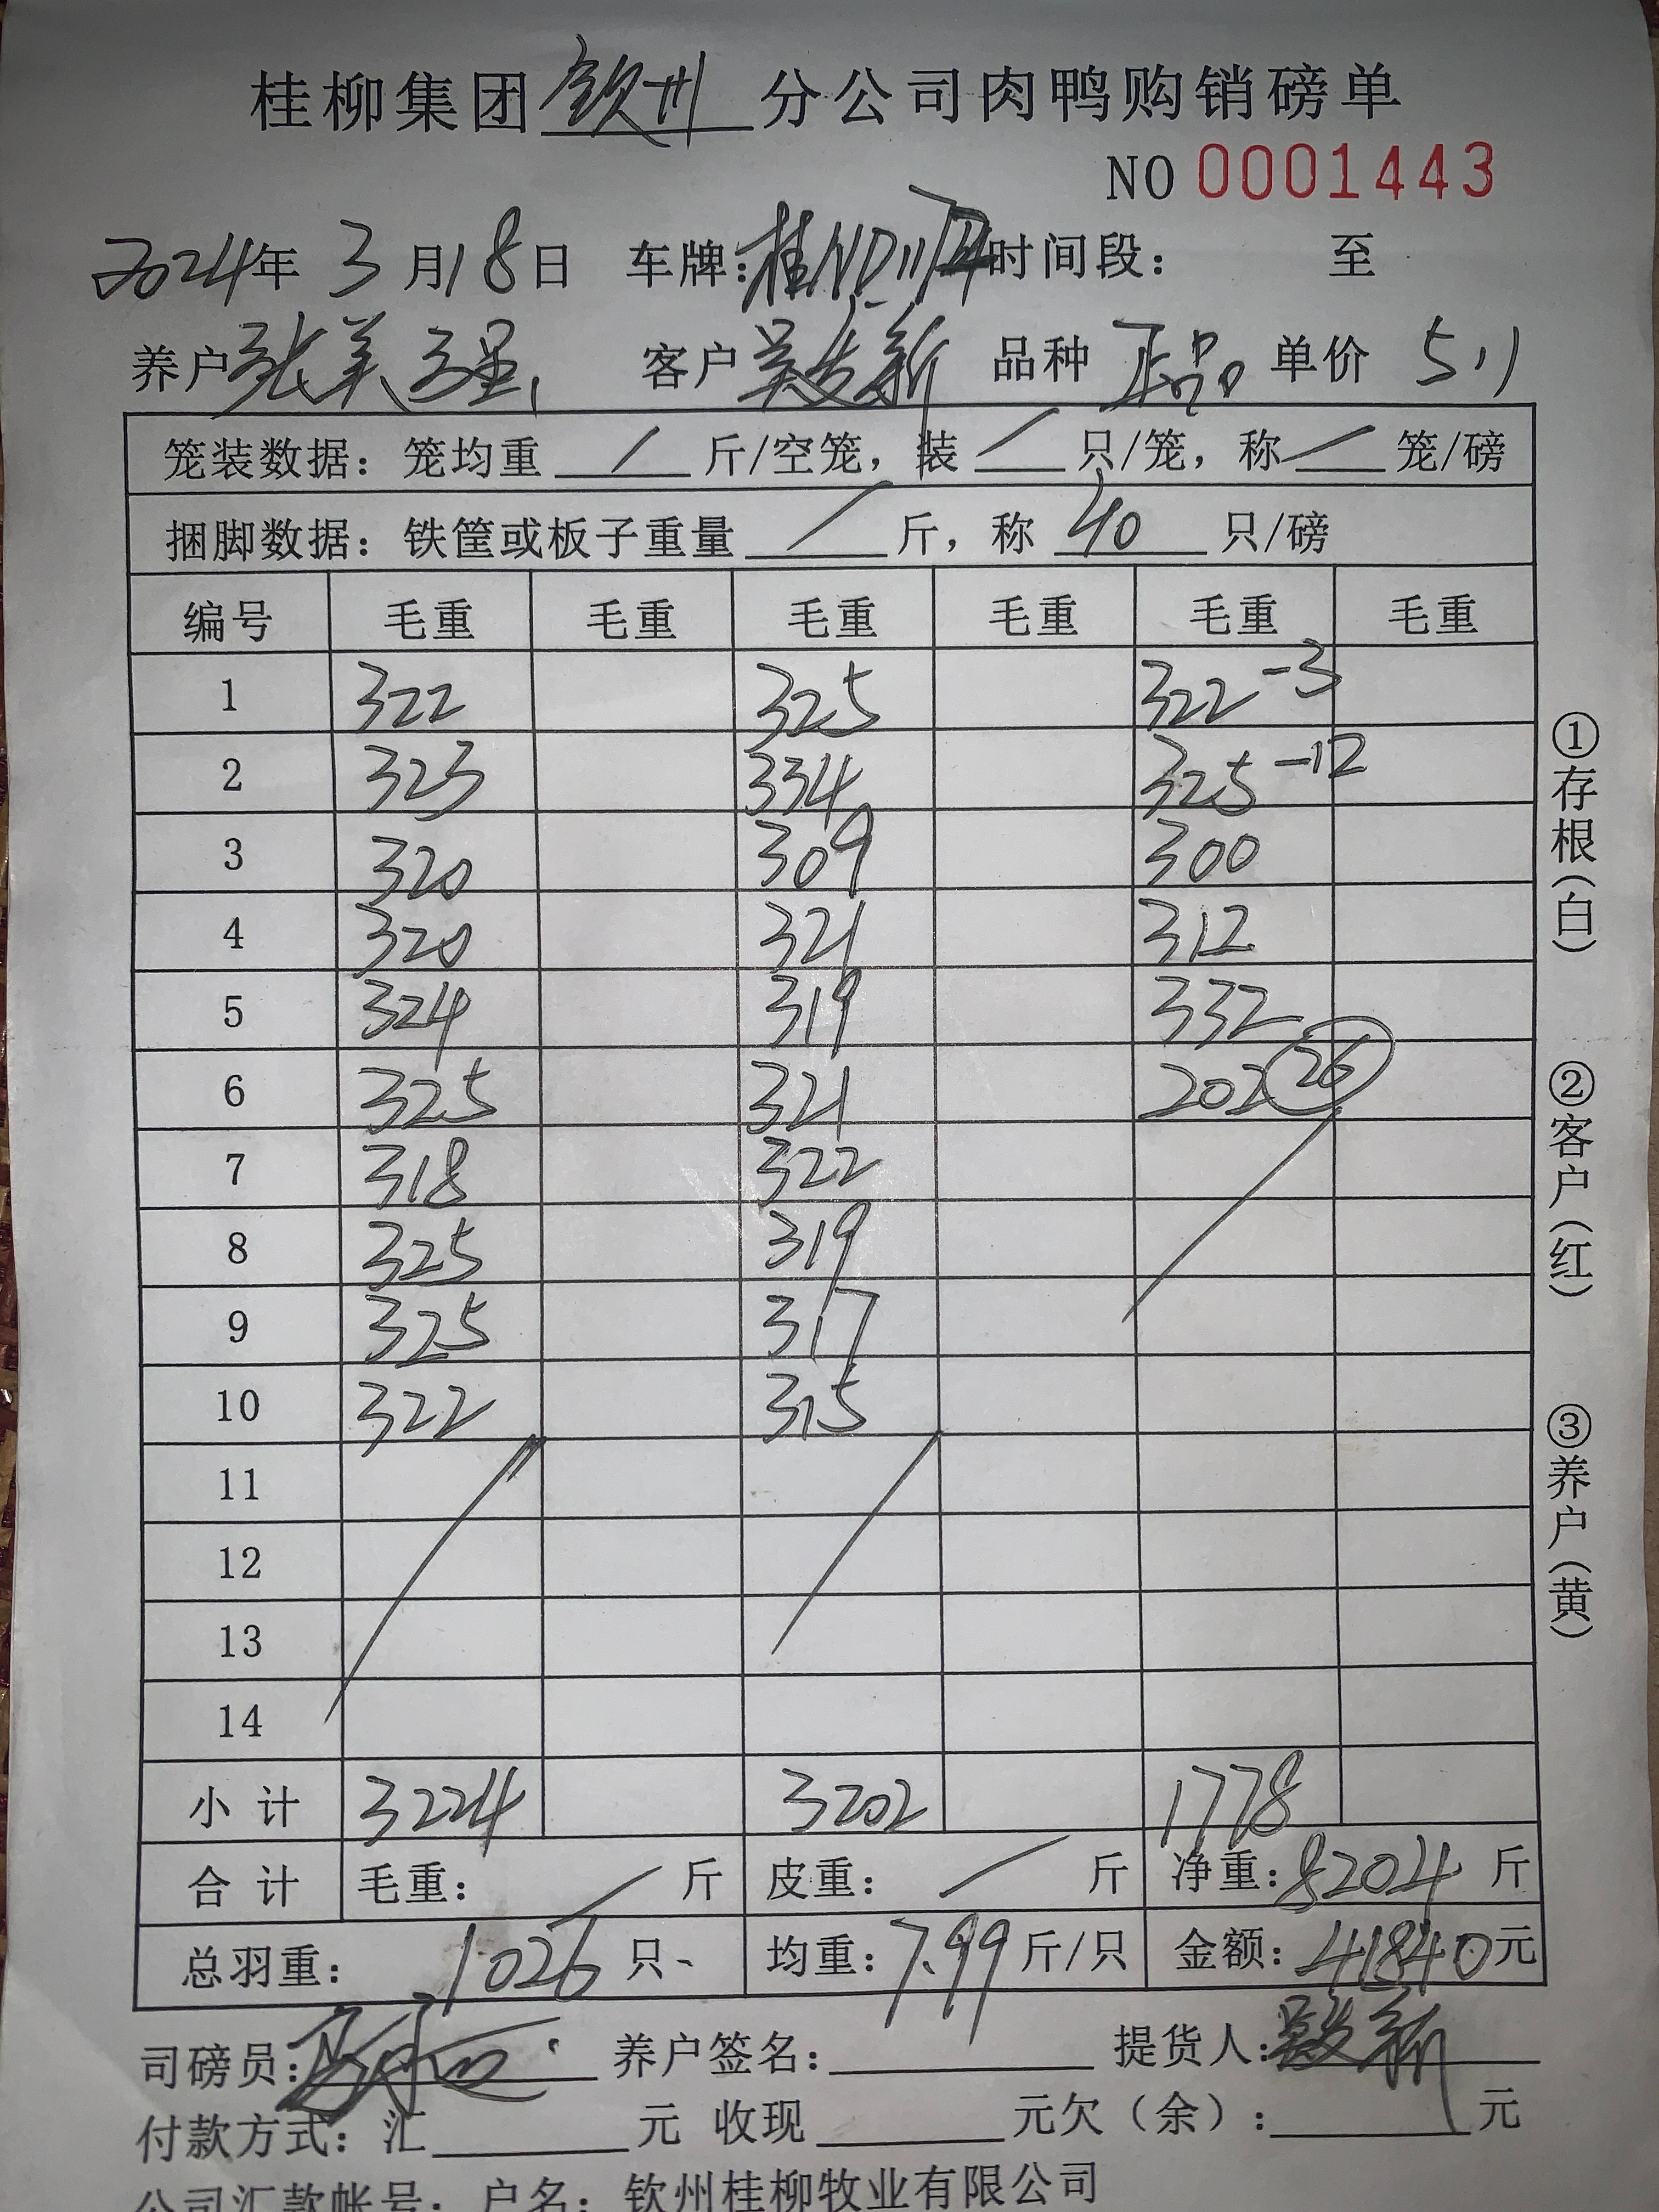 桂柳集团钦州分公司肉鸭购销磅单
NO 0001443
2024年 3 月 18 日 车牌: 时间段: 至
养户 张美 客户 吴发新 品种 正品 单价 5.1
笼装数据: 笼均重 / 斤/空笼, 装 / 只/笼, 称 / 笼/磅
捆脚数据: 铁筐或板子重量 / 斤, 称 40 只/磅
编号 毛重 毛重 毛重 毛重 毛重 毛重
1 322 325 322-3
2 323 334 325-12
3 320 309 300
4 320 321 312
5 324 319 332
6 325 321 202 26
7 318 322
8 325 319
9 325 317
10 322 315
11
12
13
14
小计 3224 3202 1778
合计 毛重: / 斤 皮重: / 斤 净重: 8204 斤
总羽重: 1026 只、 均重: 7.99 斤/只 金额: 41840 元
司磅员: 养户签名: 提货人: 吴发新
付款方式: 汇 元 收现 元欠(余): 元
公司汇款帐号: 户名: 钦州桂柳牧业有限公司
①存根(白)
②客户(红)
③养户(黄)